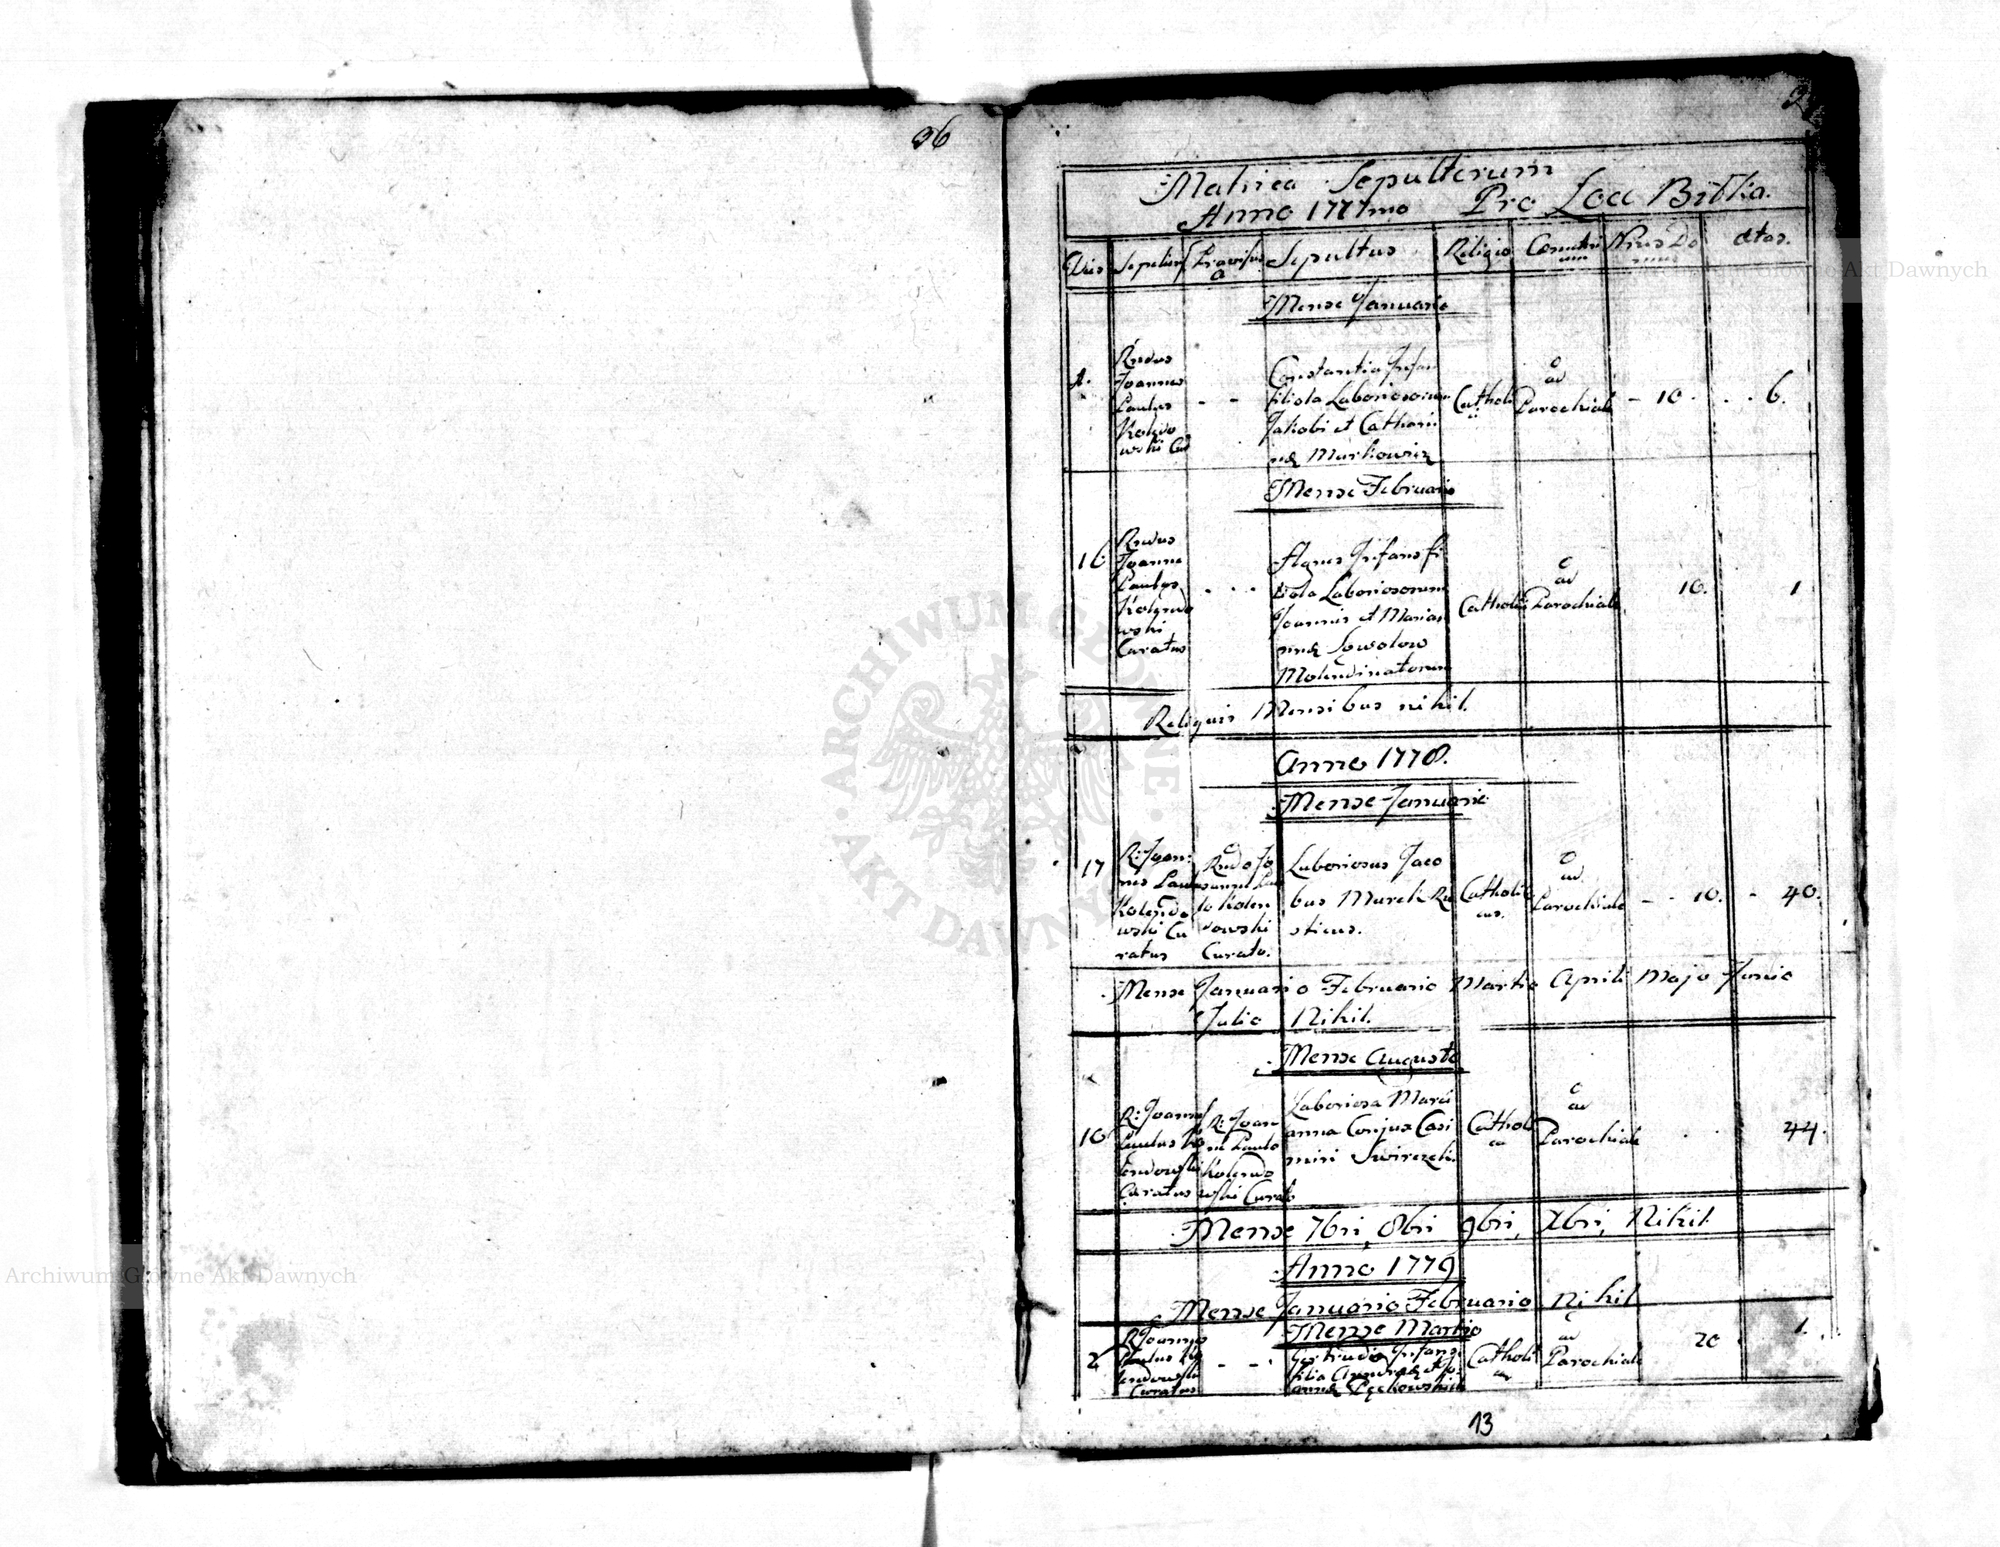 36
Matrica Sepultorum
Anno 1777mo Pro Loco Bitka.
Dies Sepeliens Provisus a Sepultus Religio Cemeterium Nrus Domus Ætas.
Mense Januario
Rndus
Joannes
Paulus
Kolędo
wski Cur
- -
Constantia Infans
filiola Laboriosorum
Jakobi et Cathari
næ Murkowicz
Catholi
ca
ad
Parochiale
- 10 .
. . 6.
Mense Februario
16
Rndus
Joannes
Paulus
Kolędo
wski
Curatus
. . .
Agnes Infans fi
liola Laboriosorum
Joannis et Marian
næ
Molendinatorum
Catholica
ad
Parochiale
10.
1
Reliquis Mensibus nihil.
Anno 1778.
Mense Januario
17
R: Joan
nes Paulus
Kolędo
wski Cu
ratus
Rndo Jo
anne Pau
lo Kolen
dowski
Curato.
Laboriosus Jaco
bus Murek Ru
sticus.
Catholi
cus.
ad
Parochiale
- - 10.
- 40.
Mense Januario Februario Martio Aprili Majo Junio
Julio Nihil.
Mense Augusto
10
R: Joannes
Paulus Ko
lendowski
Curatus
R: Joan
ne Paulo
Kolendo
wski Curato
Laboriosa Mari
anna Conjux Casi
miri Swirczek.
Catholi
ca
ad
Parochiale
. .
44.
Mense 7bri, 8bri 9bri, Xbri, Nihil
Anno 1779
Mense Januario Februario Nihil
Mense Martio
2
R Joannes
Paulus Ko
lendowski
Curatus
- - .
Gertrudis Infans
filia
Catholi
ca
ad
Parochiale
20
1.
13
Archiwum Główne Akt Dawnych
Archiwum Główne Akt Dawnych
ARCHIWUM GŁÓWNE
AKT DAWNYCH